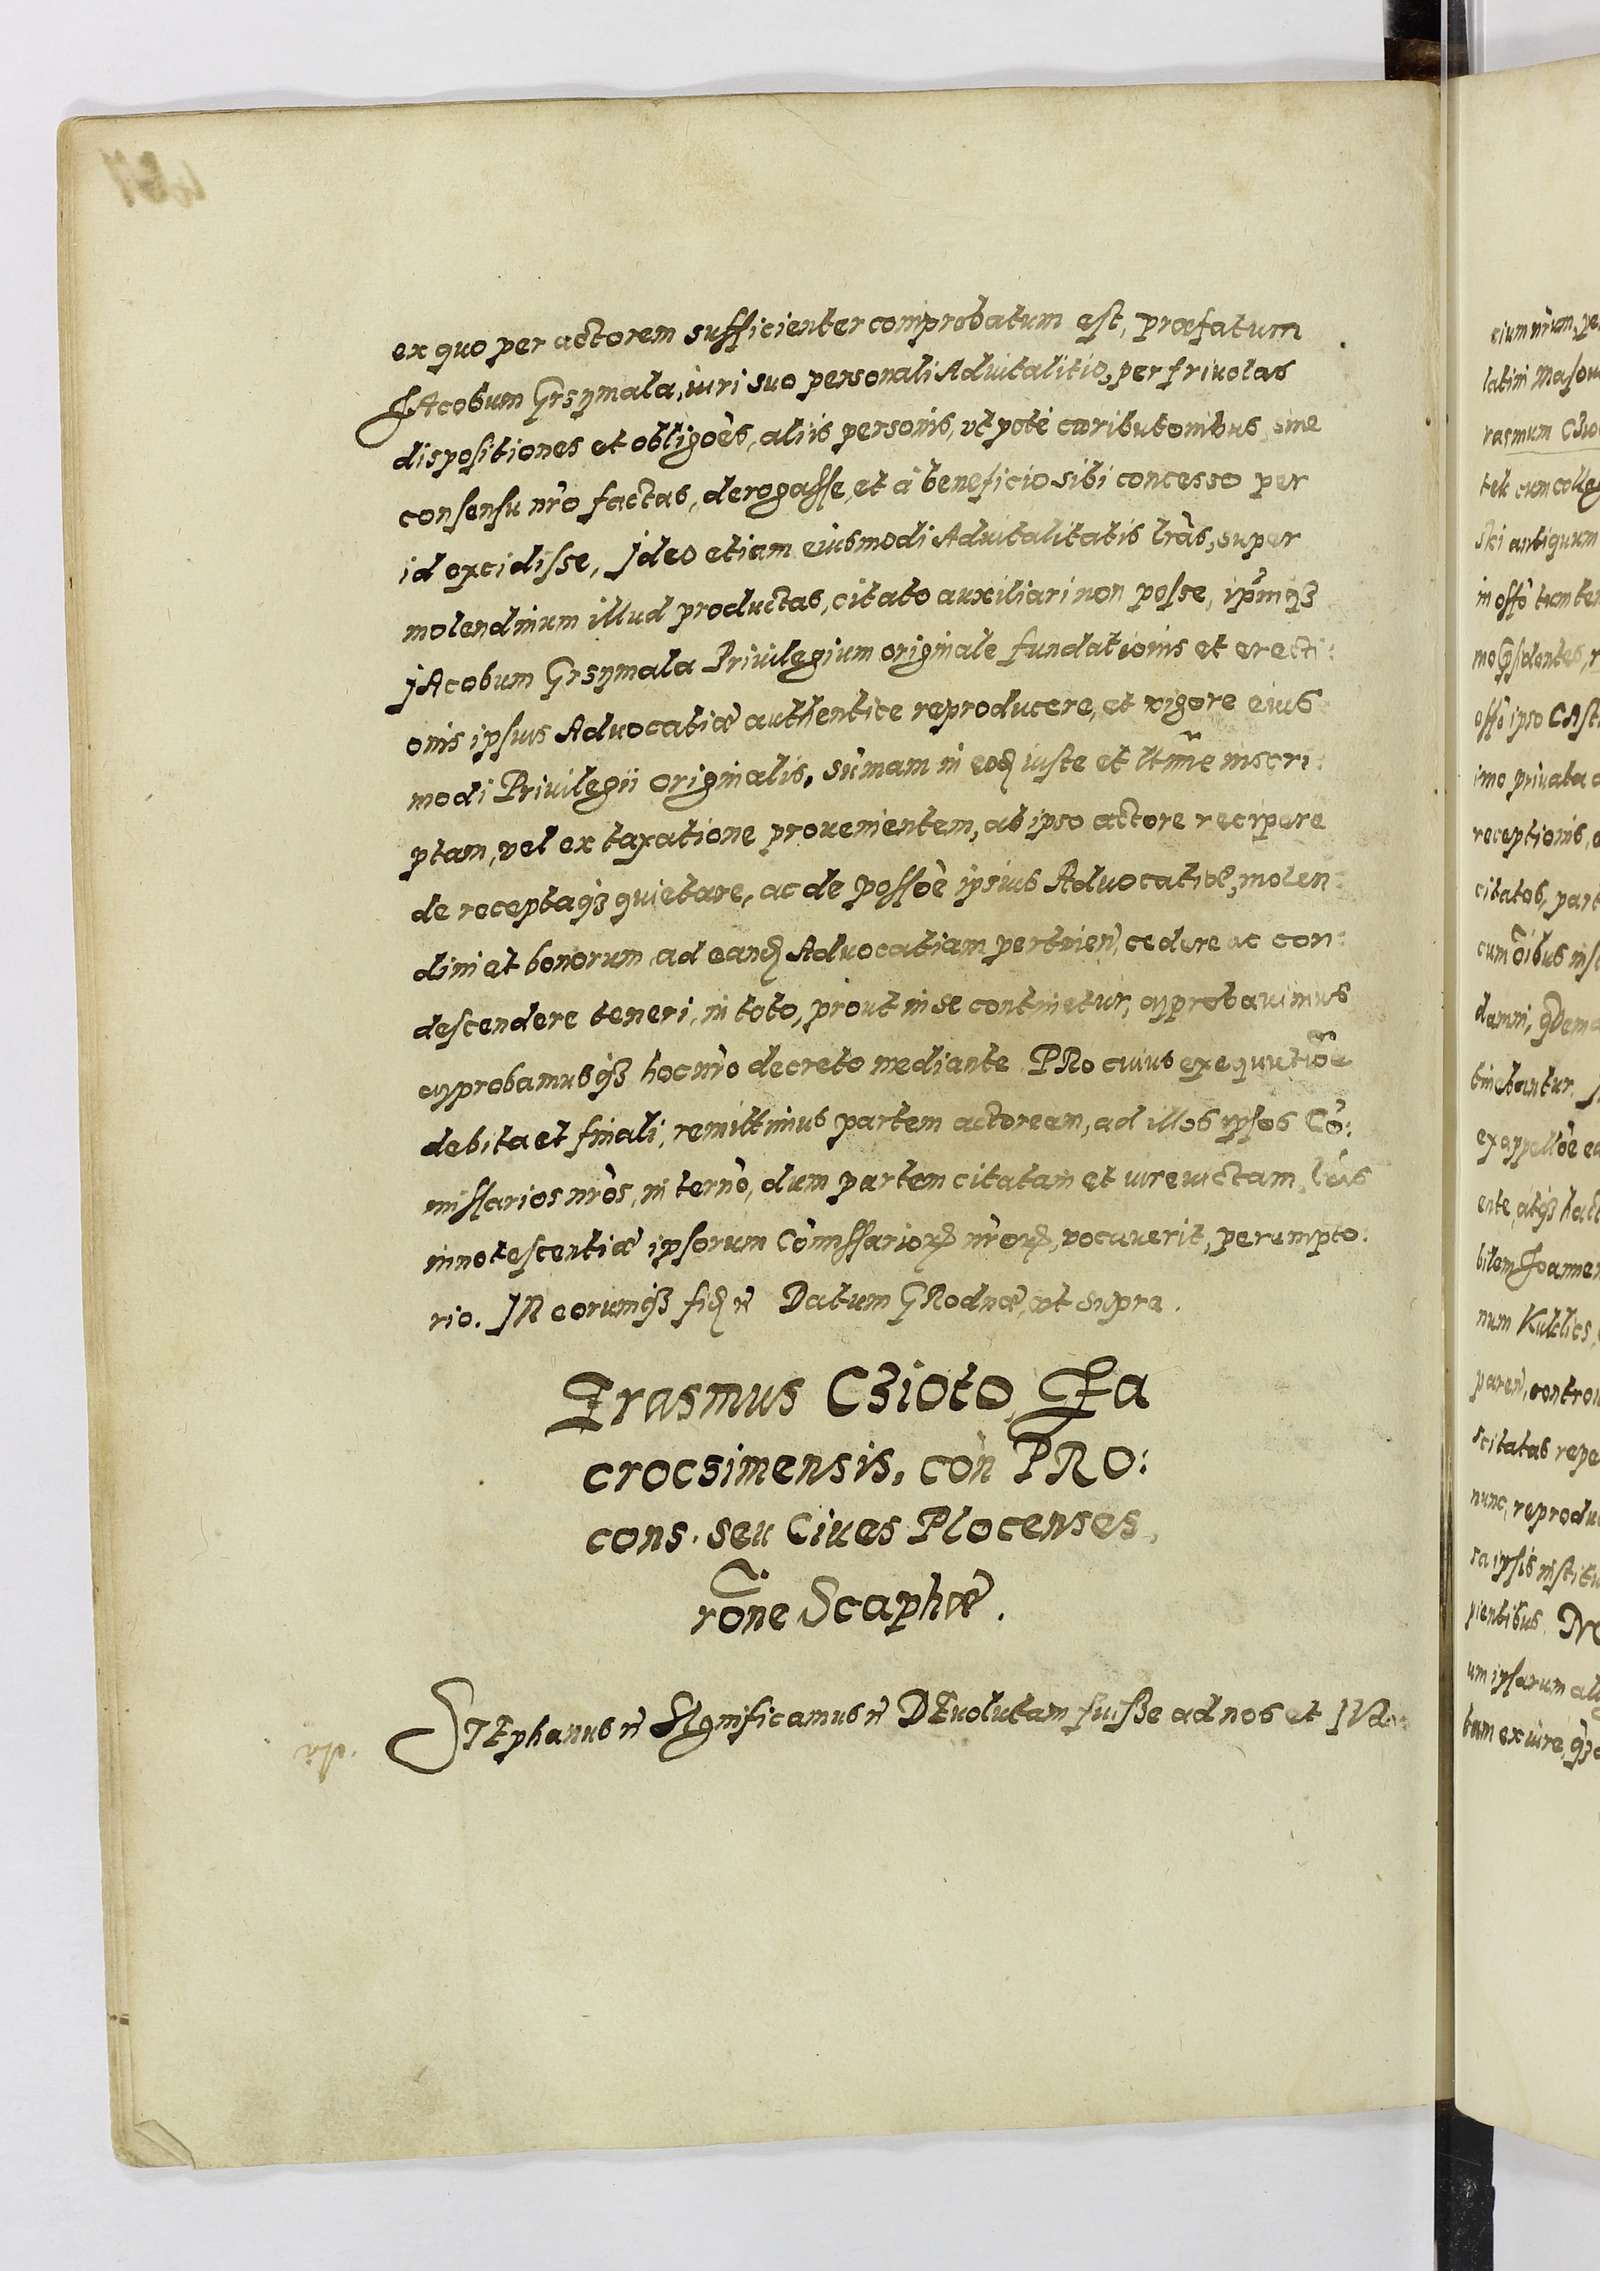 ex quo per actorem sufficienter comprobatum est, præfatum
JAcobum Grzymala, iuri suo personali Aduitalitio, per friuolas
dispositiones et obligoēs, aliis personis, vt pote contributonibus, sine
consensu nrō factas, derogasse, et à beneficio sibi concesso per
id excidisse, Ideo etiam eiusmodi Aduitalitatis lrās, super
molendinum illud productas, citato auxiliari non posse, ipsumqз
JAcobum Grzymala Priuilegium originale fundationis et erecti:
onis ipsius Aduocatiæ authentice reproducere, et vigore eius
modi Priuilegii originalis, sūmam in eodꝫ iuste et ltīme inscri:
ptam, vel ex taxatione prouenientem, ab ipso actore recipere
de receptaqз quietare, ac de possoē ipsius Aduocatiæ, molen:
dini et bonorum ad eandꝫ Aduocatiam pertinen̄, cedere ac con:
descendere teneri, in toto, prout in se continetur, approbauimus
approbamusqз hoc nrō decreto mediante PRo cuius exequutiōe
debita et finali, remittimus partem actoream, ad illos ipsos Cō:
missarios nrōs, in termō, dum partem citatam et iure victam, lrīs
innotescentiæ ipsorum Cōmissarioꝝ nrōꝝ, vocauerit, perempto:
rio. IN eorumqз fidꝫ rc̄ Datum GRodnæ, vt supra.
Erasmus Cзioto, Za
croczimensis, con̄ PRO:
cons. seu Ciues Plocenses,
rōne Scaphæ.
STEphanus rc̄ SIgnificamus rc̄ DEuolutam fuisse ad nos et IVdi
eium nrūm, pe
latini Masoui
rasmum Czio
tek cum colleg
ski antiquum
in offō tum te
offō ipso CAst
imo priuata
receptionis,
citatos, part
cum oībus ins
damni,
tinebantur.
ex appellōe
ente, atqз
bilem Joannem
num Kulclics,
paren̄, contro
scitatas repe
nunc, reprodu
sa ipsis institu
pientibus.
um ipsarum al
tam ex iure,